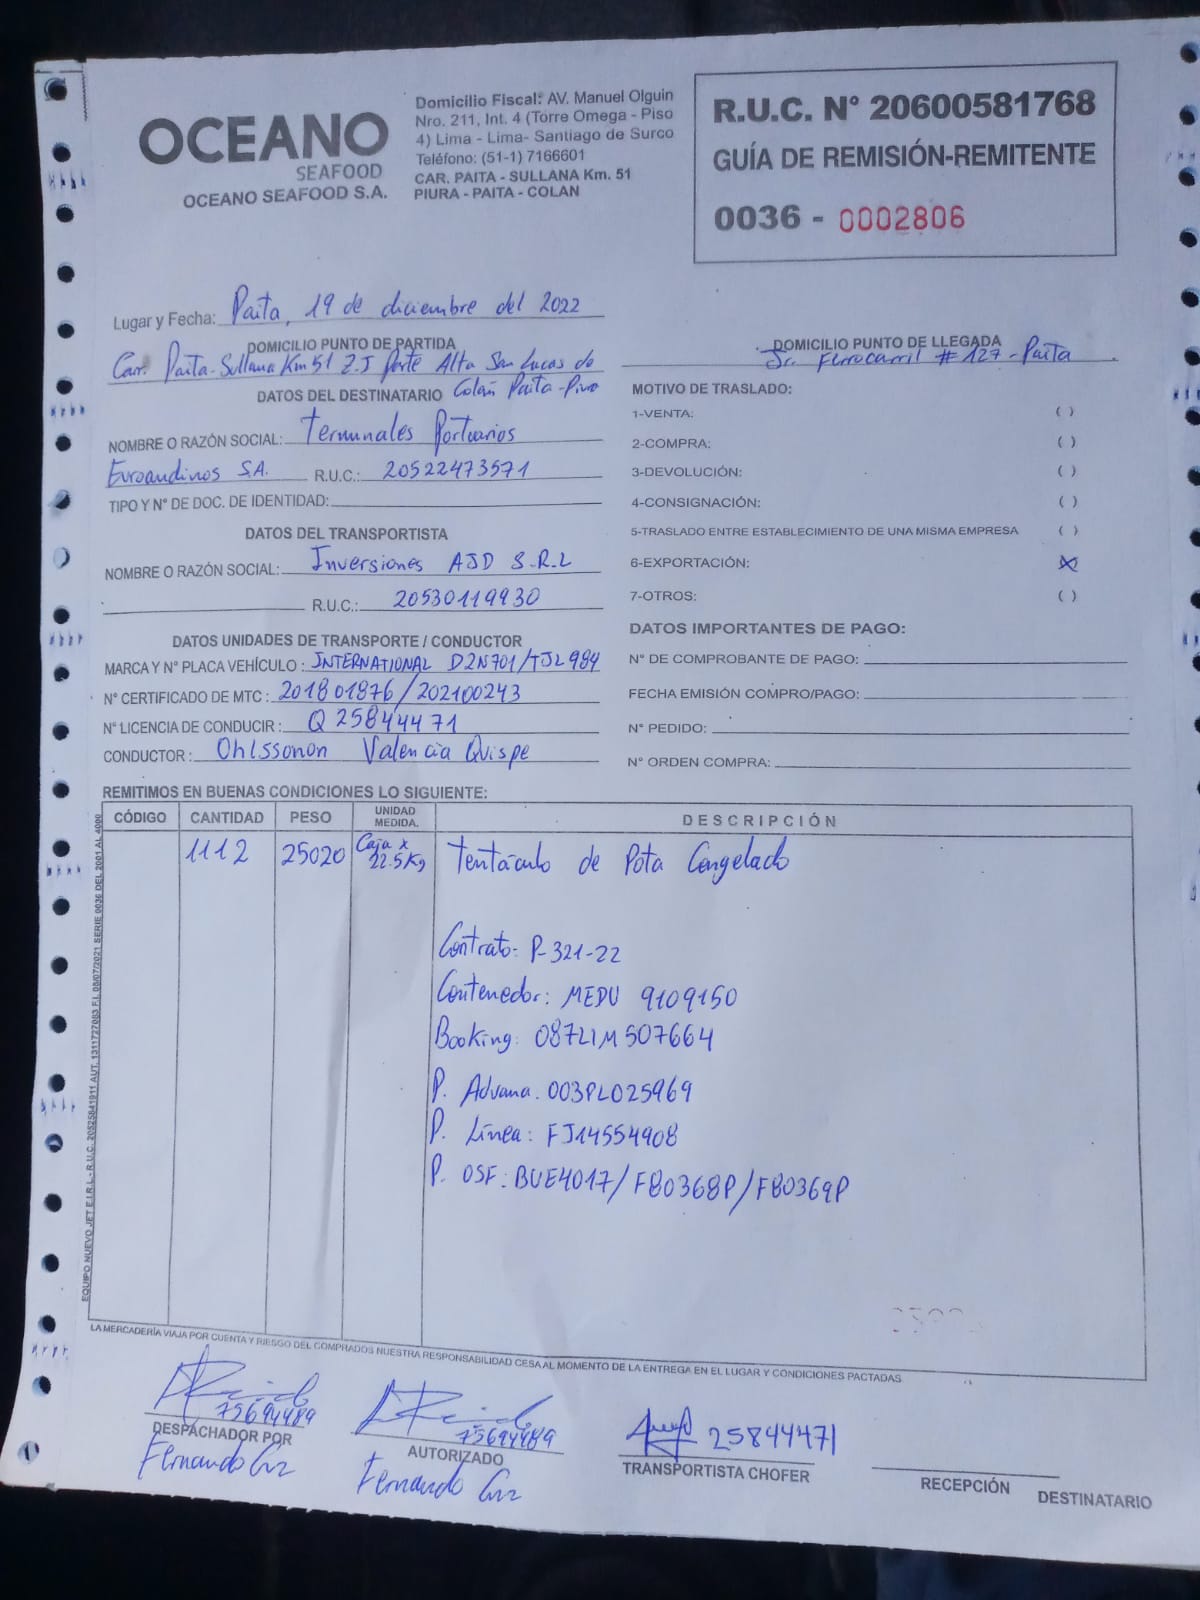 OCEANO
SEAFOOD
OCEANO SEAFOOD S.A.
Domicilio Fiscal: AV. Manuel Olguin
Nro. 211, Int. 4 (Torre Omega - Piso
4) Lima - Lima- Santiago de Surco
Teléfono: (51-1) 7166601
CAR. PAITA - SULLANA Km. 51
PIURA - PAITA - COLAN
R.U.C. N° 20600581768
GUÍA DE REMISIÓN-REMITENTE
0036 - 0002806
Lugar y Fecha: Paita, 19 de diciembre del 2022
DOMICILIO PUNTO DE PARTIDA
Car. Paita-Sullana Km 51 Z.I Parte Alta San Lucas de
Colán Paita-Piura
DOMICILIO PUNTO DE LLEGADA
Jr. Ferrocarril # 127 - Paita
DATOS DEL DESTINATARIO
NOMBRE O RAZÓN SOCIAL: Terminales Portuarios
Euroandinos S.A. R.U.C.: 20522473571
TIPO Y N° DE DOC. DE IDENTIDAD:
DATOS DEL TRANSPORTISTA
NOMBRE O RAZÓN SOCIAL: Inversiones AJD S.R.L
R.U.C.: 20530119930
DATOS UNIDADES DE TRANSPORTE / CONDUCTOR
MARCA Y N° PLACA VEHÍCULO : INTERNATIONAL D2N701/TJL984
N° CERTIFICADO DE MTC : 201801876/202100243
N° LICENCIA DE CONDUCIR : Q25844471
CONDUCTOR : Ohlssonon Valencia Quispe
MOTIVO DE TRASLADO:
1-VENTA: ( )
2-COMPRA: ( )
3-DEVOLUCIÓN: ( )
4-CONSIGNACIÓN: ( )
5-TRASLADO ENTRE ESTABLECIMIENTO DE UNA MISMA EMPRESA ( )
6-EXPORTACIÓN: (X)
7-OTROS: ( )
DATOS IMPORTANTES DE PAGO:
N° DE COMPROBANTE DE PAGO:
FECHA EMISIÓN COMPRO/PAGO:
N° PEDIDO:
N° ORDEN COMPRA:
REMITIMOS EN BUENAS CONDICIONES LO SIGUIENTE:
CÓDIGO CANTIDAD PESO UNIDAD MEDIDA. DESCRIPCIÓN
1112 25020 Caja x 22.5Kg Tentáculo de Pota Congelado
Contrato: P-321-22
Contenedor: MEDU 9109150
Booking: 087LIM507664
P. Aduana. 003PL025969
P. Línea: FJ14554908
P. OSF: BUE4017/FB0368P/FB0369P
EQUIPO NUEVO JET E.I.R.L - R.U.C. 20525841911 AUT. 1311727083 F.I. 08/07/2021 SERIE 0036 DEL 2001 AL 4000
LA MERCADERÍA VIAJA POR CUENTA Y RIESGO DEL COMPRADOS NUESTRA RESPONSABILIDAD CESA AL MOMENTO DE LA ENTREGA EN EL LUGAR Y CONDICIONES PACTADAS
75694489
DESPACHADOR POR
Fernando Cruz
75694489
AUTORIZADO
Fernando Cruz
25844471
TRANSPORTISTA CHOFER
RECEPCIÓN DESTINATARIO